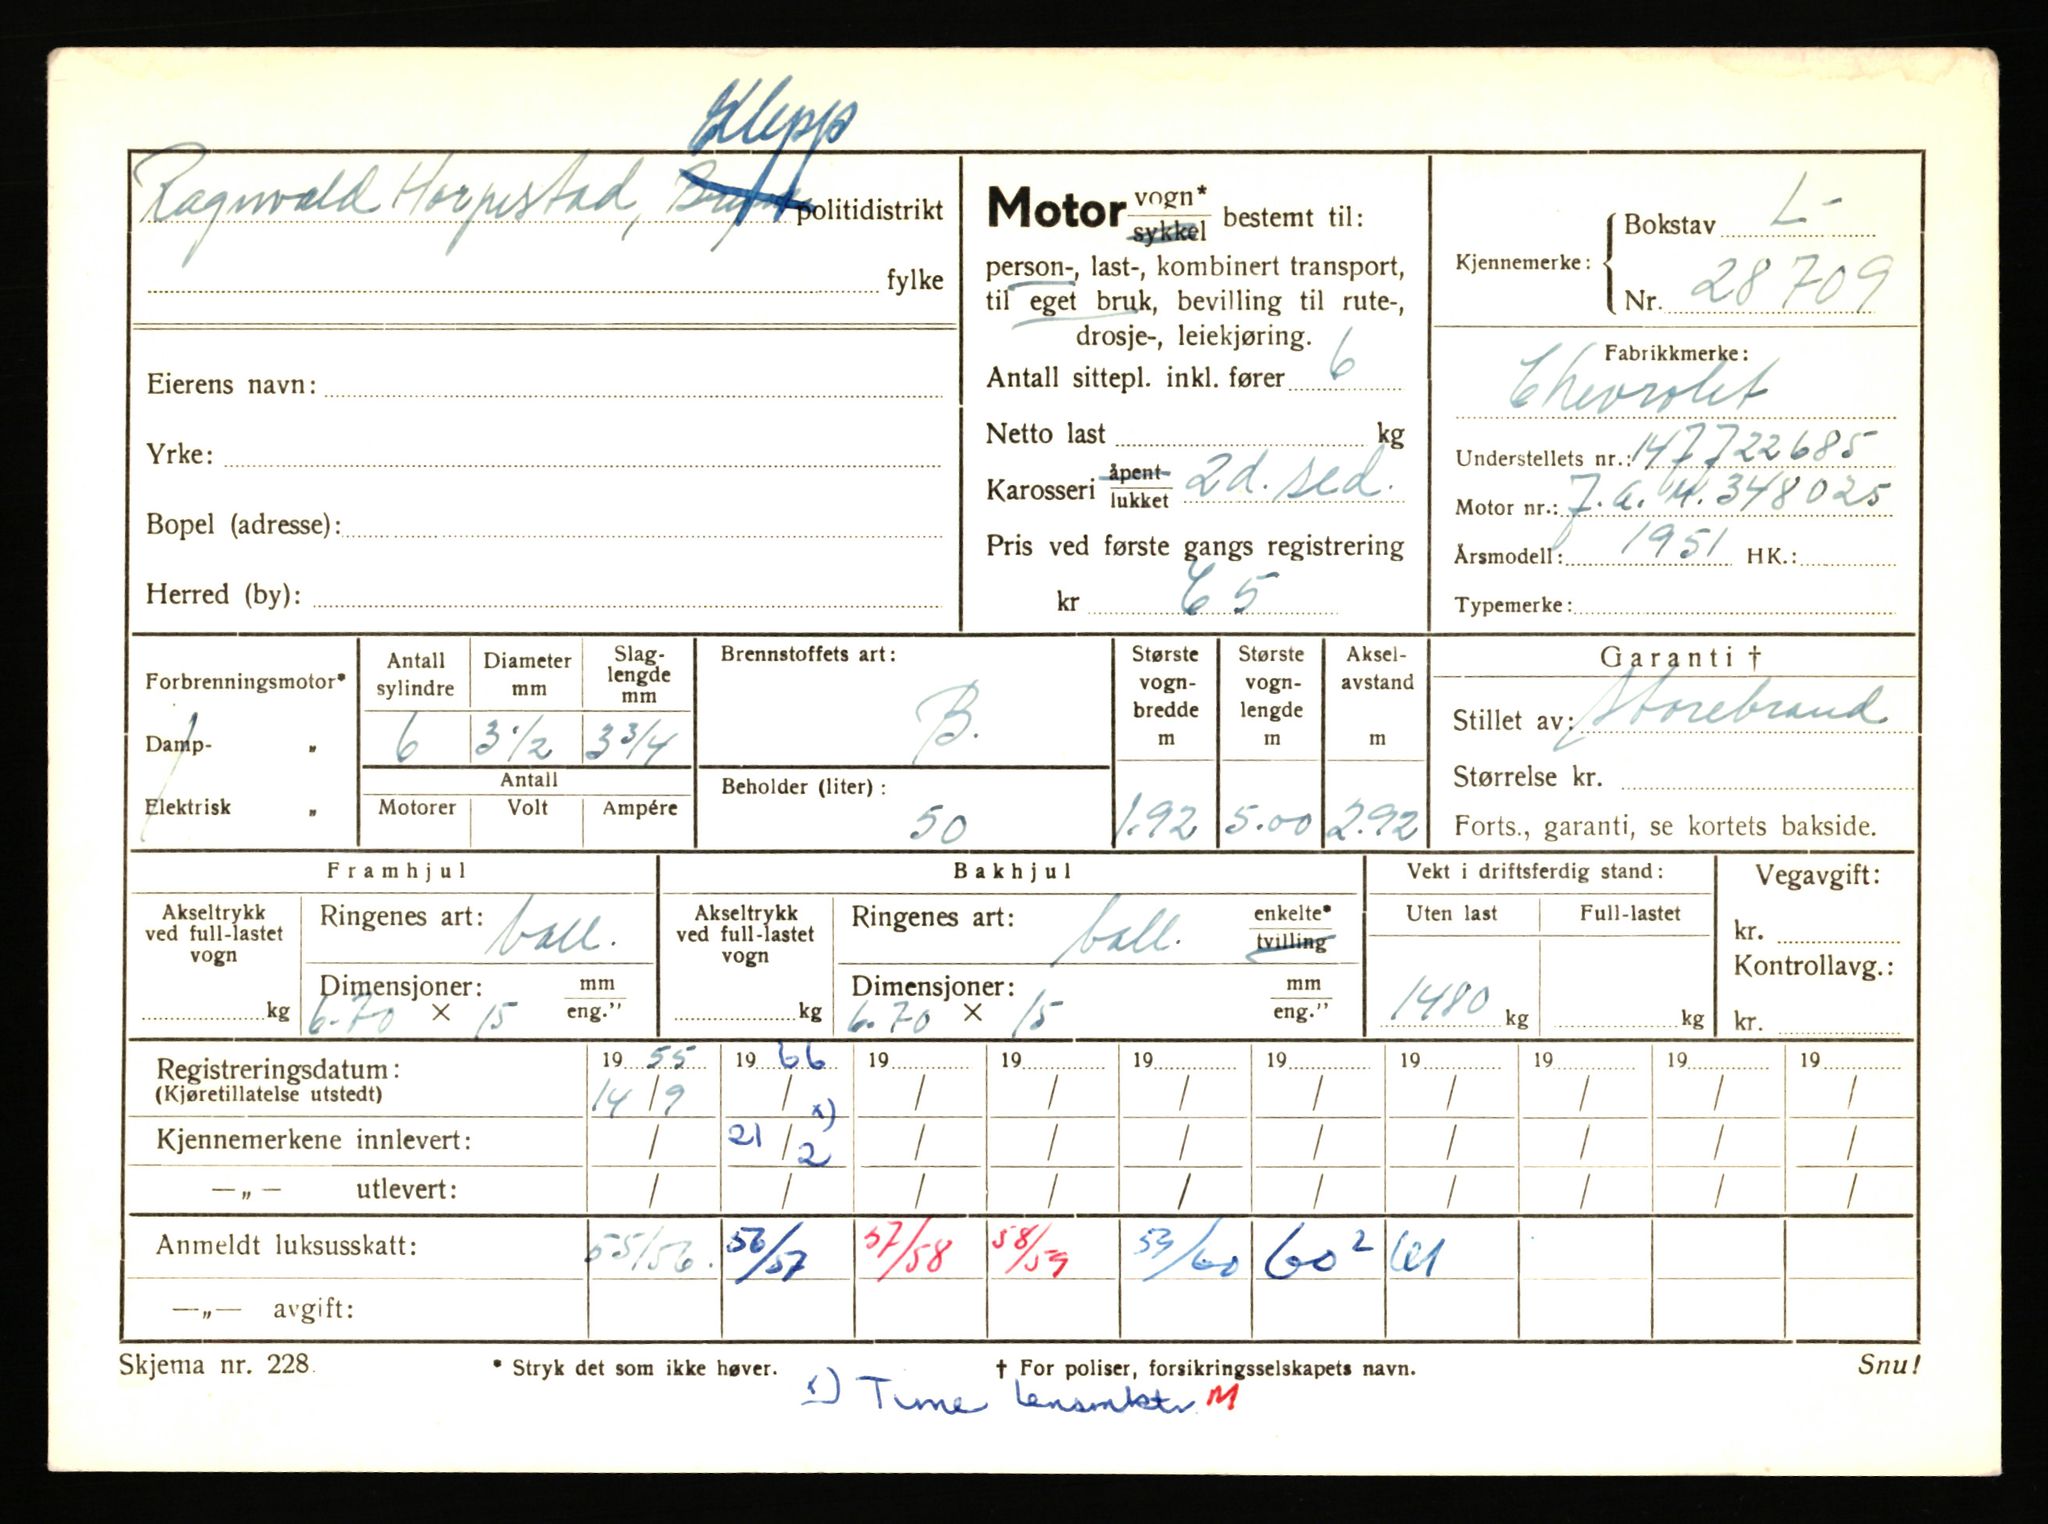 Klepp
Ragnvald Horpestad, politidistrikt
fylke
Eierens navn:
Yrke:
Bopel (adresse):
Herred (by):
Motor vogn* sykkel bestemt til:
person-, last-, kombinert transport,
til eget bruk, bevilling til rute-,
drosje-, leiekjøring.
Antall sittepl. inkl. fører 6
Netto last kg
Karosseri åpent lukket 2d. sed.
Pris ved første gangs registrering
kr 65
Kjennemerke: Bokstav L-
Nr. 28709
Fabrikkmerke:
Chevrolet
Understellets nr.: 147722685
Motor nr.: J.a.M. 348025
Årsmodell: 1951 HK.:
Typemerke:
Forbrenningsmotor*
Damp- "
Elektrisk "
Antall sylindre Diameter mm Slag-lengde mm
6 3 1/2 3 3/4
Antall
Motorer Volt Ampére
Brennstoffets art:
B.
Beholder (liter):
50
Største vogn-bredde m
1.92
Største vogn-lengde m
5.00
Aksel-avstand m
2.92
Garanti †
Stillet av: Storebrand
Størrelse kr.
Forts., garanti, se kortets bakside.
Framhjul
Akseltrykk ved full-lastet vogn
kg
Ringenes art: ball.
Dimensjoner: mm eng."
6.70 × 15
Bakhjul
Akseltrykk ved full-lastet vogn
kg
Ringenes art: ball. enkelte* tvilling
Dimensjoner: mm eng."
6.70 × 15
Vekt i driftsferdig stand:
Uten last Full-lastet
1480 kg kg
Vegavgift:
kr.
Kontrollavg.:
kr.
Registreringsdatum: 19 55 19 66 19 19 19 19 19 19 19 19
(Kjøretillatelse utstedt) 14/9 / / / / / / / / /
x)
Kjennemerkene innlevert: / 21/2 / / / / / / / /
—„— utlevert: / / / / / / / / / /
Anmeldt luksusskatt: 55/56. 56/57 57/58 58/59 59/60 60² 61
—„— avgift:
Skjema nr. 228. * Stryk det som ikke høver. † For poliser, forsikringsselskapets navn. Snu!
x) Time lensmktr M